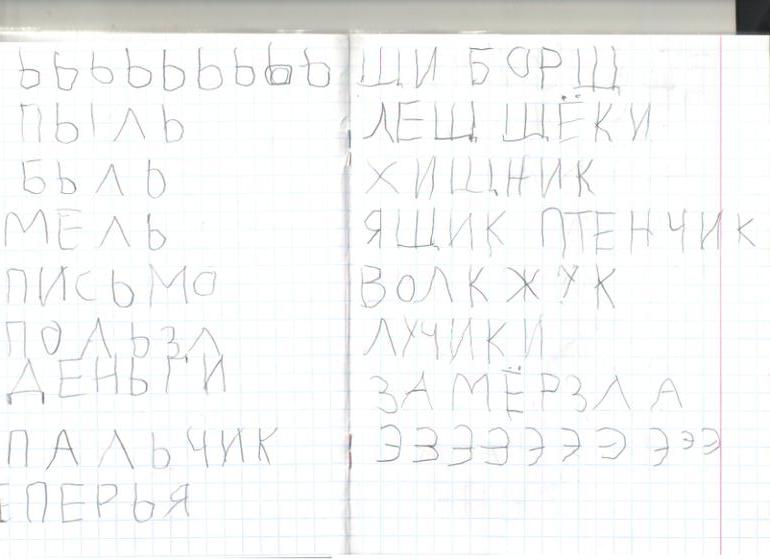 ЬЬЬЬЬЬЬЬЬ
ПЫЛЬ
БЬЛЬ
МЕЛЬ
ПИСЬМО
ПОЛЬЗЛ
ДЕНЬГИ
ПАЛЬЧИК
ЕПЕРЬЯ
ЩИ БОРЩ
ЛЕЩ ЩЁКИ
ХИЩНИК
ЯЩИК ПТЕНЧИК
ВОЛК ЖУК
ЛУЧИКИ
ЗАМЁРЗЛА
ЭЗЭЭЭЭЭЭЭЭ